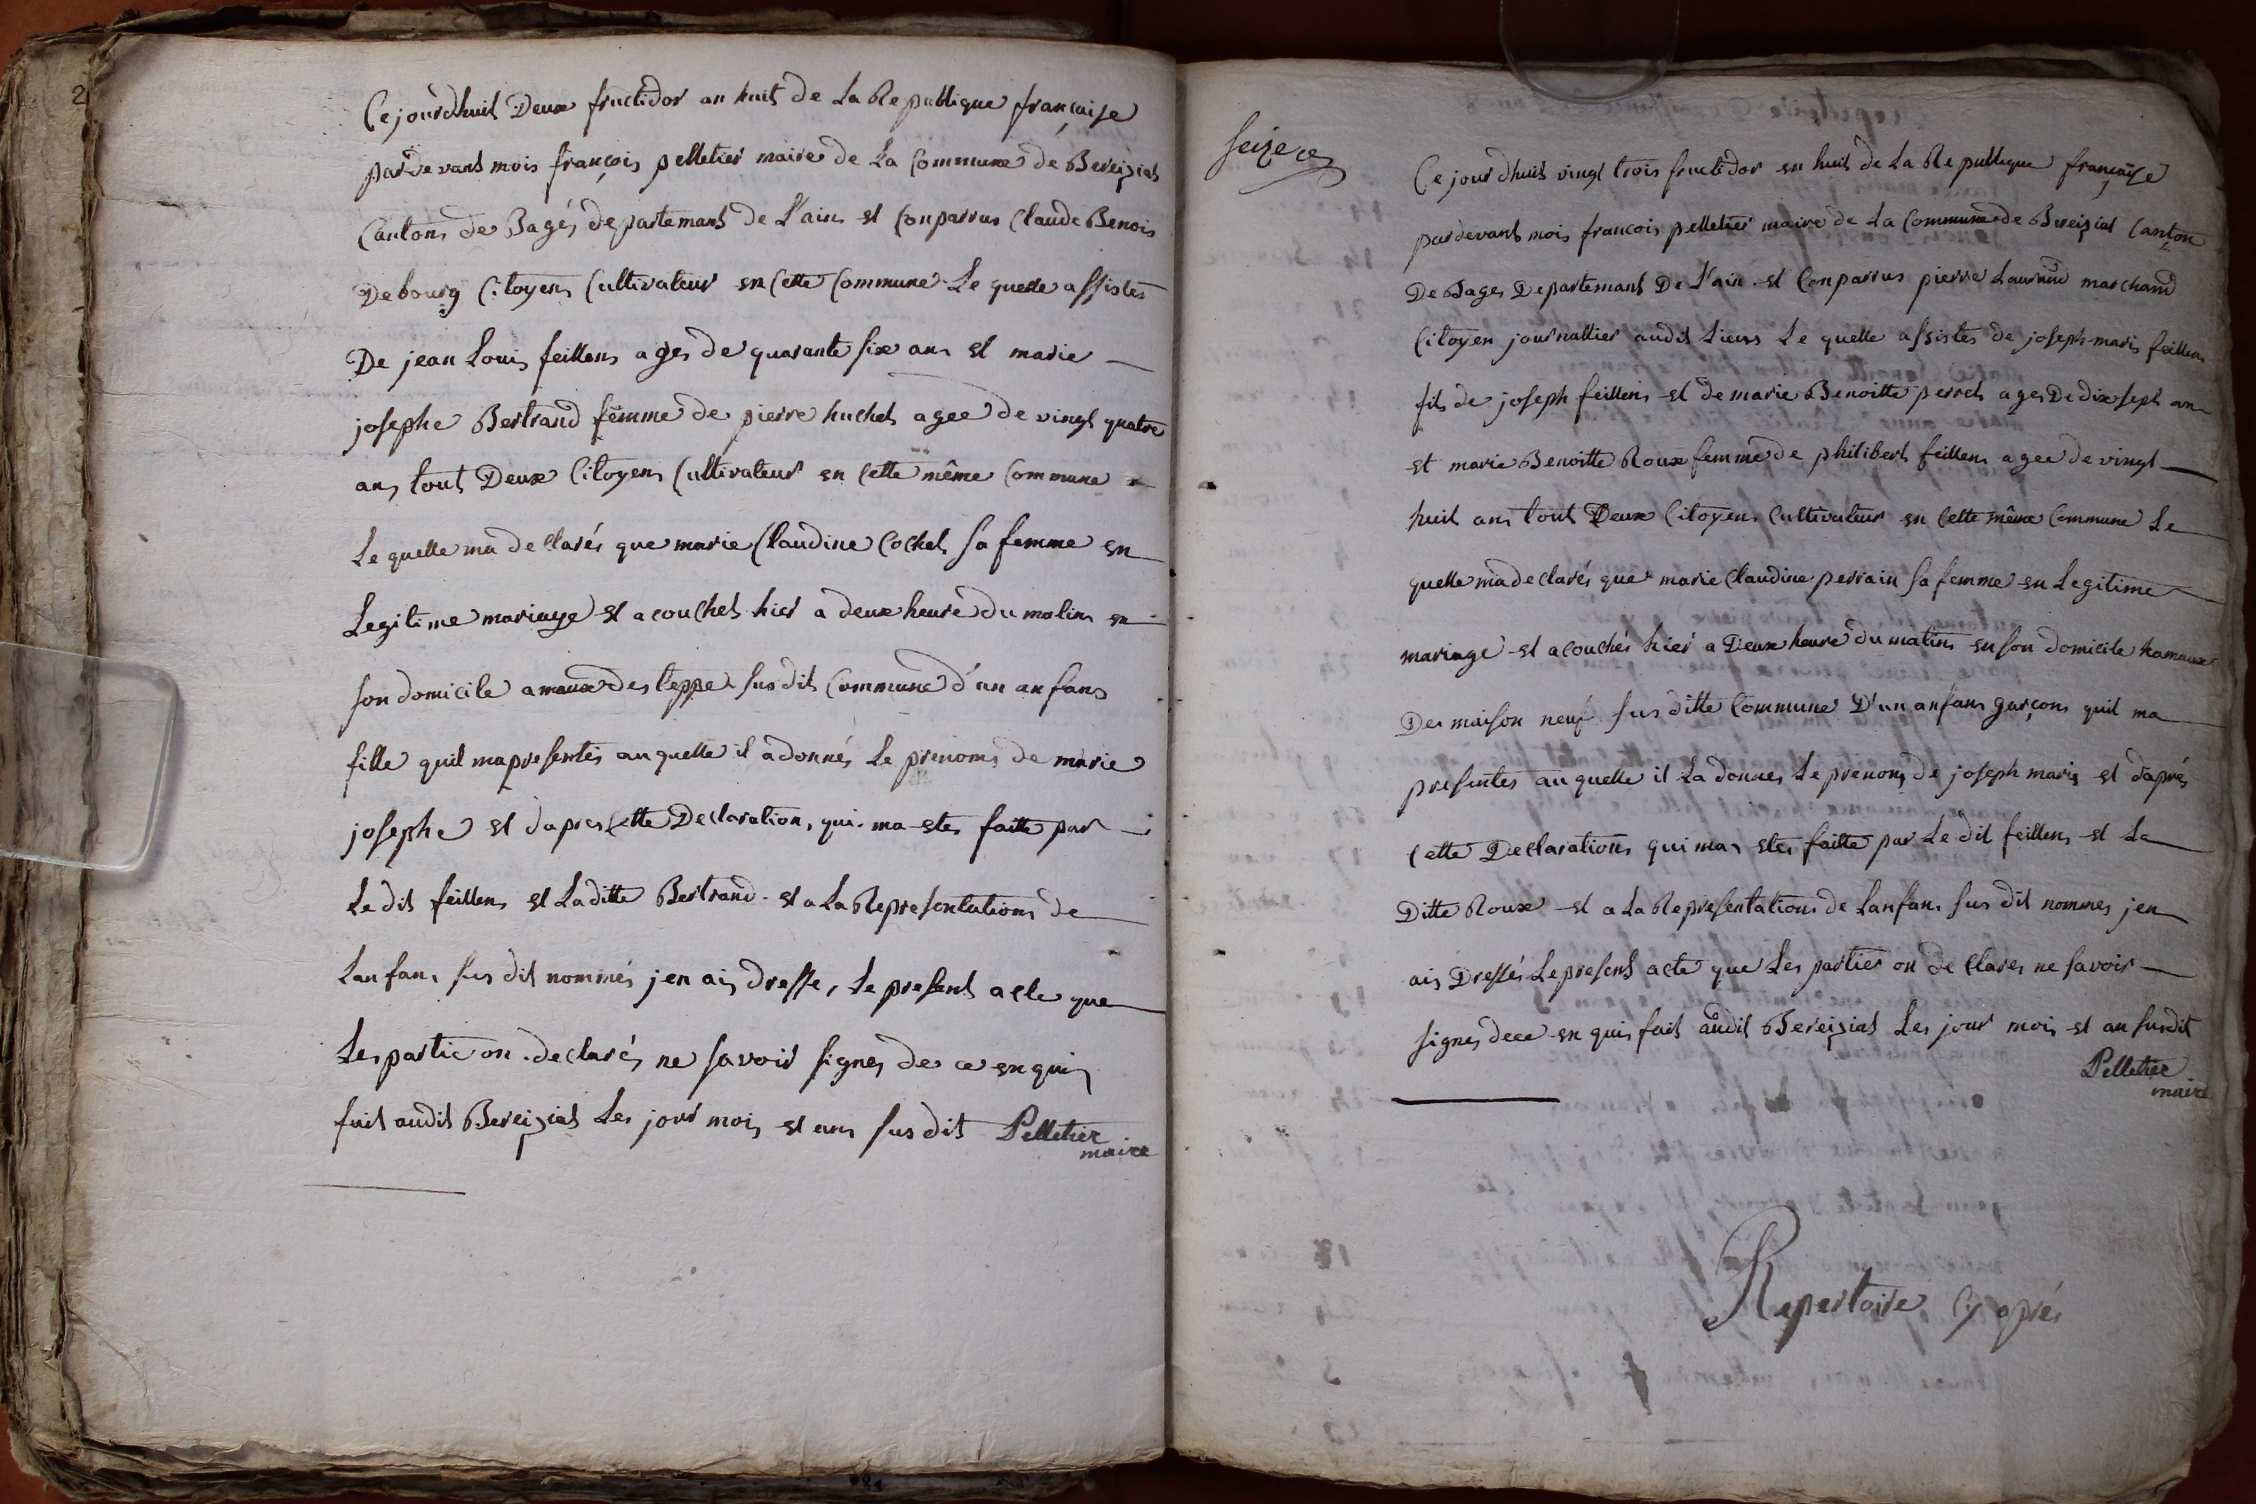 2
Cejourdhuit Deux fructidor an huit de La Republique française
pardevant mois françois pelletier maire de La Commune de Bereiziat
Canton de Bagés departemant de L'ain est Conparrus Claude Benois
Debourg Citoyen Cultivateur en Cette Commune Le quelle assistes
De jean Louis feillens ages de quarante six ans et marie
josephe Bertrand femme de pierre huchet agee de vingt quatre
ans tout Deux Citoyens Cultivateur en Cette même Commune
Le quelle ma declarés que marie Claudine Cochet sa femme en
Legitime mariage et acouchet hier a deux heure du matin en
son domicile amaux des teppe sus dit Commune d'un anfans
fille quil mapresentés auquelle il a donnés Le prenoms de marie
josephe et dapres Cette Declaration, qui ma etes faitte par
Le dit feillens et La ditte Bertrand et a La Representations de
Lanfans sus dit nommés jen ais dresse, Le present acte que
Les partie on declarés ne savoir signes de ce enquis
fait audit Bereiziat Les jour mois et ans sus dit Pelletier
maire
seize
Ce jourdhuit vingt trois fructidor en huit de La Republique française
pardevant mois francois pelletier maire de La Commune de Bereiziat Canton
De Bages Departemant De L'ain et Conparrus pierre Laurand marchand
Citoyen journallier audit Lieus Le quelle assistes de joseph maris feillens
fils de joseph feillens et de marie Benoitte perret ages De dix sept ans
et marie Benoitte Roux femme de philibert feillens agee de vingt
huit ans tout Deux Citoyens Cultivateur en Cette même Commune Le
quelle ma declarés que marie Claudine perrain sa femme en Legitime
mariage et acouchés hier a Deux heure du matin en son domicile hamaux
Des maison neuf sus ditte Commune D'un anfans garçons quil ma
presentes auquelle il La donnes Le prenons de joseph maris et daprés
Cette Declarations qui mas etes faitte par Le dit feillens et La
Ditte Roux et a La Representations de Lanfans sus dit nommes jen
ais Dressés Le present acte que Les partier on declares ne savoir
signes dece en quis fait audit Bereiziat Les jour mois et an susdit
Pelletier
maire
Repertoire Cy aprés